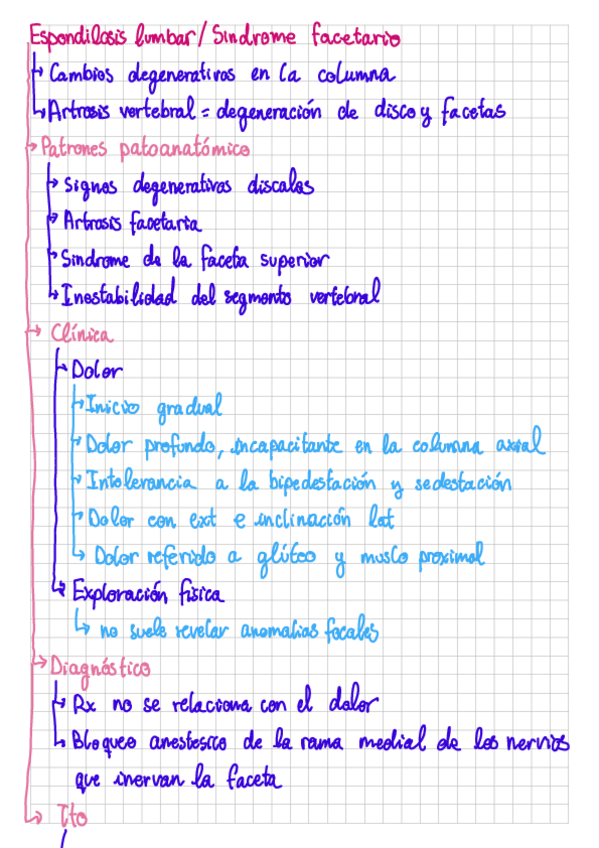 Espondilosis lumbar/Sindrome facetario
Cambios degenerativos en la columna
Artrosis vertebral = degeneración de disco y facetas
Patrones patoanatómico
Signos degenerativos discales
Artrosis facetaria
Sindrome de la faceta superior
Inestabilidad del segmento vertebral
Clínica
Dolor
Inicio gradual
Dolor profundo, incapacitante en la columna axial
Intolerancia a la bipedestación y sedestación
Dolor con ext e inclinación lat
Dolor referido a glúteo y muslo proximal
Exploración física
no suele revelar anomalias focales
Diagnóstico
Rx no se relaciona con el dolor
Bloqueo anestesico de la rama medial de los nervios
que inervan la faceta
Tto